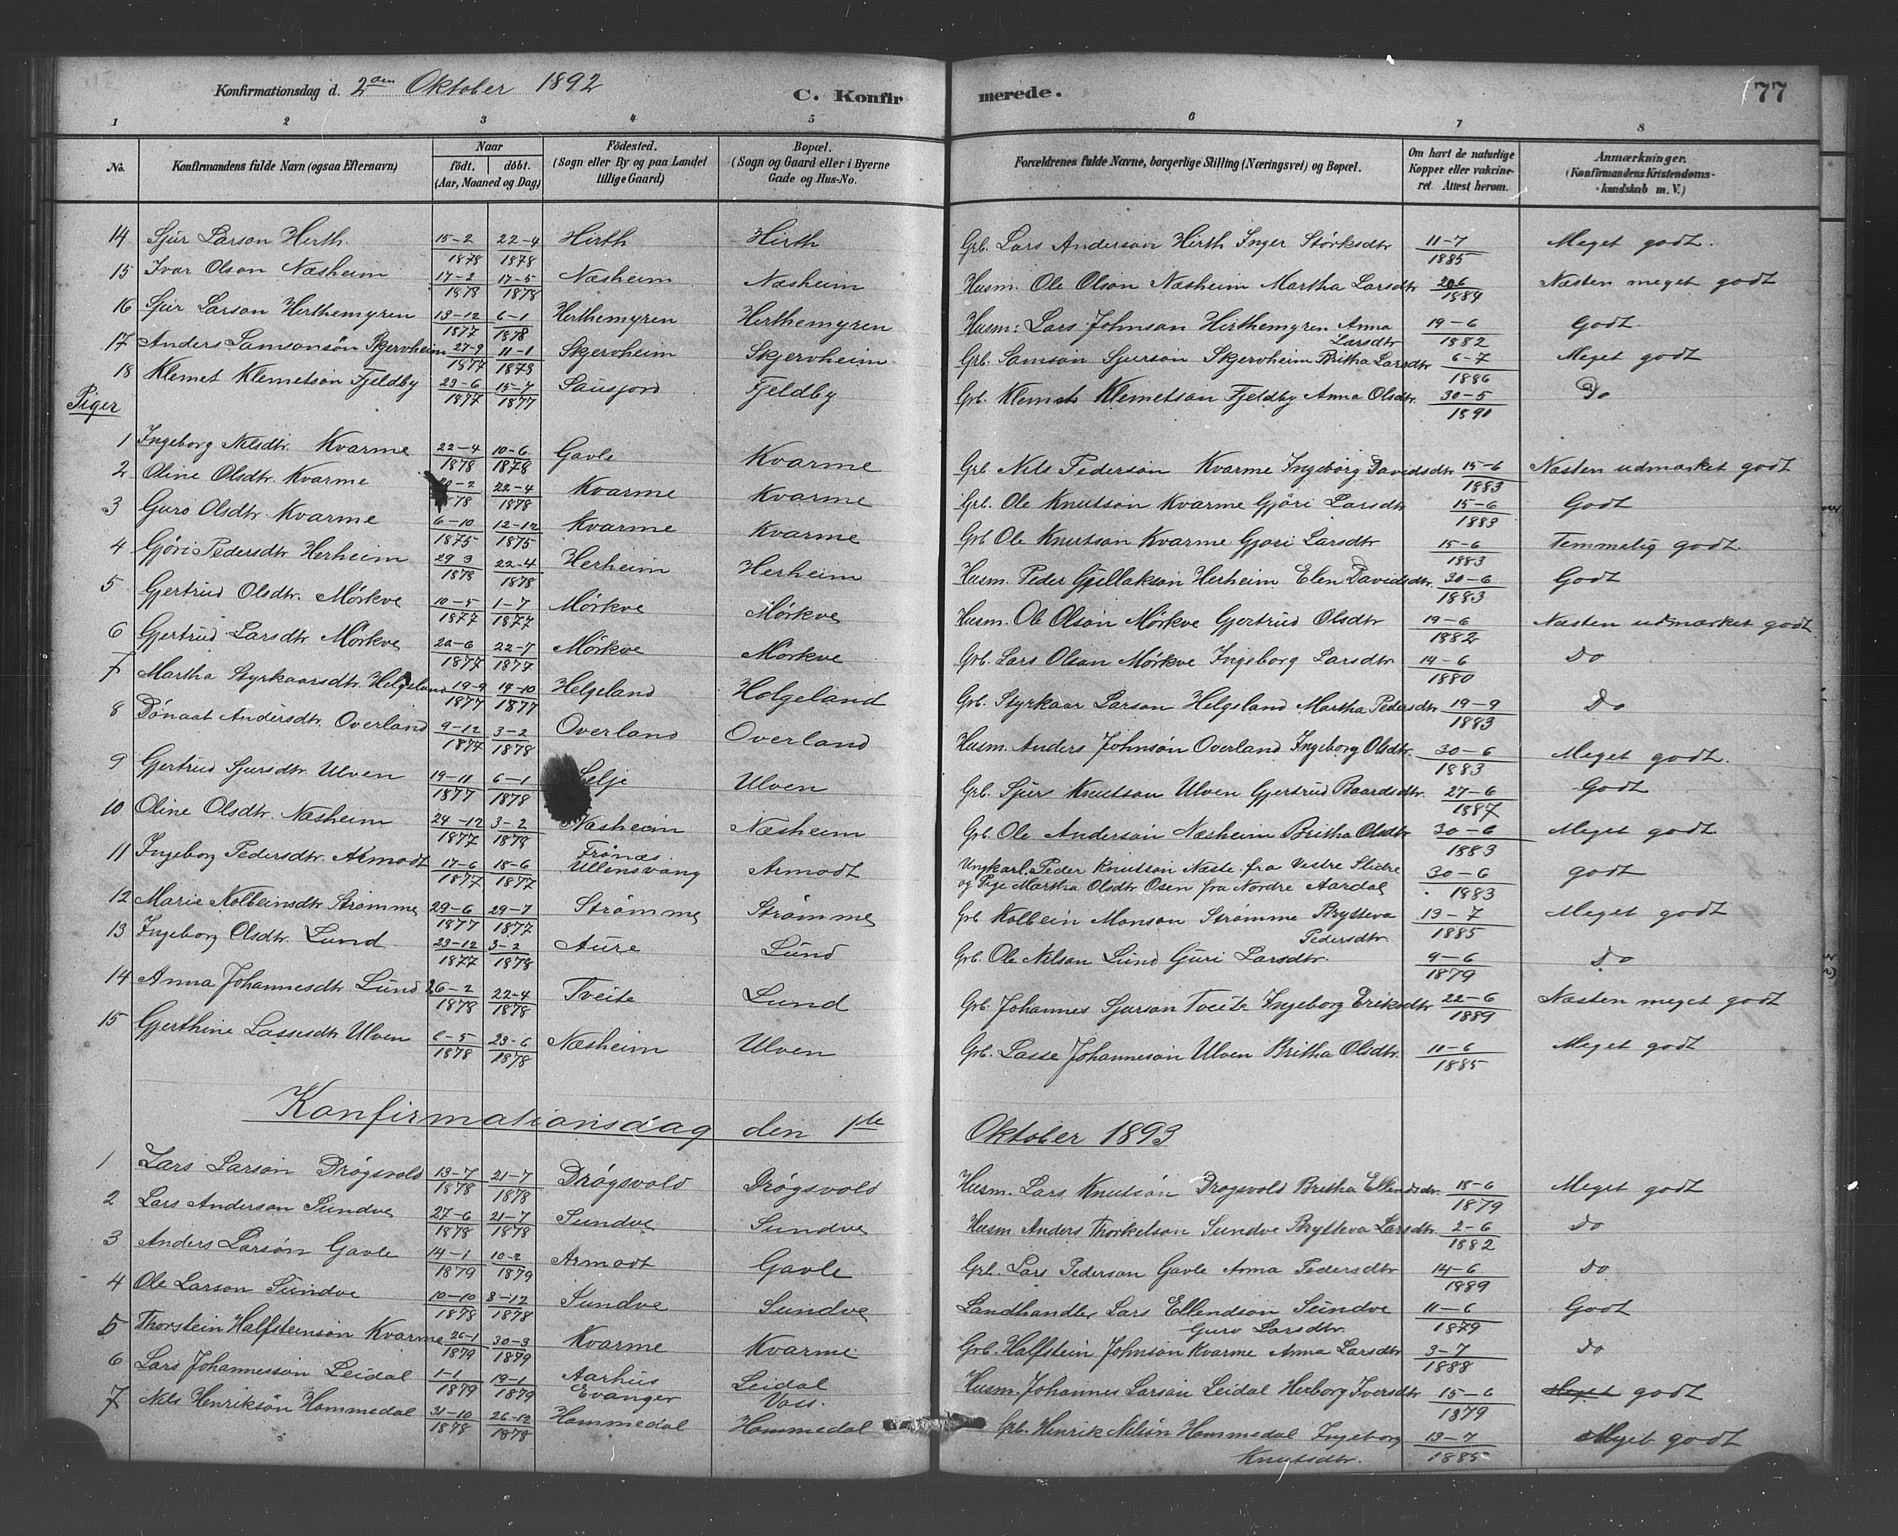 Konfirmationsdag d. 2den Oktober 1892 C. Konfirmerede. 77
1 2 3 4 5 6 7 8
No. Konfirmandens fulde Navn (ogsaa Efternavn) Naar født. døbt. (Aar, Maaned og Dag) Fødested. (Sogn eller By og paa Landet tillige Gaard) Bopæl. (Sogn og Gaard eller i Byerne Gade og Hus-No. Forældrenes fulde Navne, borgerlige Stilling (Næringsvei) og Bopæl. Om havt de naturlige Kopper eller vakcineret. Attest herom. Anmærkninger. (Konfirmandens Kristendomskundskab m. V.)
14 Sjur Larson Herth. 15-2 1878 22-4 1878 Hirth Hirth Grb. Lars Anderson Hirth Inger Størksdtr 11-7 1885 Meget godt.
15 Ivar Olson Næsheim 17-2 1878 17-5 1878 Næsheim Næsheim Husm. Ole Olson Næsheim Martha Larsdtr 1884 Næsten meget godt
16 Sjur Larson Herthemyren 13-12 1877 6-1 1878 Herthemyren Herthemyren Husm: Lars Johnson Hirthemyren Anna Larsdtr 19-6 1882 Godt.
17 Anders Samsonsøn Skjervheim 27-9 1877 11-1 1878 Skjervheim Skjervheim Grb. Samson Sjurson Skjervheim Britha Larsdtr 6-7 1886 Meget godt
18 Klemet Klemetson Fjeldby 23-6 1877 15-7 1877 Sausjord Fjeldby Grb. Klemet Klemetson Fjeldby Anna Olsdtr. 30-5 1891 Do
Piger
1 Ingeborg Nilsdtr. Kvarme 22-4 1878 10-6 1878 Gavle Kvarme Grb. Nils Pederson Kvarme Ingebørg Davidsdtr 15-6 1883 Næsten udmærket godt
2 Oline Olsdtr. Kvarme 22-4 1878 Kvarme Kvarme Grb. Ole Knutson Kvarme Gjøri Larsdtr 15-6 1883 Godt
3 Guro Olsdtr. Kvarme 6-10 1875 12-12 1875 Kvarme Kvarme Grb Ole Knutson Kvarme Gjøri Larsdtr 15-6 1883 Temmelig godt
4 Gjøri Pedersdtr Herheim 29 3 1878 22-4 1878 Herheim Herheim Husm. Peder Gullakson Herheim Elen Davidsdtr. 30-6 1883 Godt
5 Gjertrud Olsdtr. Mørkve 10-5 1877 1-7 1877 Mørkve Mørkve Husm. Ole Olson Mørkve Gjertrud Olsdtr 19-6 1882 Næsten udmærket godt
6 Gjertrud Larsdtr Mørkve 20-6 1877 22-7 1877 Mørkve Mørkve Grb. Lars Olson Mørkve Ingeborg Larsdtr 14-6 1880 Do
7 Martha Styrkaarsdtr Helgeland 19-9 1877 19-10 1877 Helgeland Holgeland Grb. Styrkaar Larson Helgeland Martha Pedersdtr 19-9 1883 Do
8 Dønaat Andersdtr. Overland 9-12 1877 3-2 1878 Overland Overland Husm. Anders Johnsøn Overland Ingeborg Olsdtr. 30-6 1883 Meget godt.
9 Gjertrud Sjursdtr Ulven 19-11 1877 6-1 1878 Selje Ulven Grb. Sjur Knutson Ulven Gjertrud Baardsdtr. 27-6 1887 Godt
10 Oline Olsdtr. Næsheim 24-12 1877 3-2 1878 Næsheim Næsheim Grb. Ole Anderson Næsheim Britha Olsdtr 30-6 1883 Meget godt
11 Ingeborg Pedersdtr. Armodt 17-6 1877 18-6 1877 Frønæs Ullensvang Armodt Ungkarl. Peder Knutson Næste fra Vestre Slidre og Pige Martha Olsdtr. Osen fra Nordre Aardal 30-6 1883 godt
12 Marie Kolbeinsdtr Strømme 29-6 1877 29-7 1877 Strømme Strømme Grb Kolbein Monson Strømme Brytteva Pedersdtr. 13-7 1885 Meget godt
13 Ingeborg Olsdtr. Lund. 23-12 1877 3-2 1878 Aure Lund Grb. Ole Nilson Lund Guri Larsdtr. 9-6 1879 Do
14 Anna Johannesdtr Lund 26-2 1878 22-4 1878 Tveite Lund Grb. Johannes Sjurson Tveite Ingeborg Eriksdtr 22-6 1889 Næsten meget godt
15 Gjerthine Lassesdtr Ulven 6-5 1878 23-6 1878 Næsheim Ulven Grb. Lasse Johanneson Ulven Britha Olsdtr. 11-6 1885 Meget godt
Konfirmationsdag den 1ste Oktober 1893
1 Lars Larson Drøgsvold 13-7 1878 21-7 1878 Drøgsvold Drøgsvold Husm. Lars Knutsøn Drøgsvold Britha Ellendsdr. 18-6 1879 Meget godt
2 Lars Anderson Sundve 27-6 1878 21-7 1878 Sundve Sundve Husm Anders Thorkelson Sundve Brytteva Larsdtr 2-6 1882 Do
3 Anders Larsøn Gavle 14-1 1879 10-2 1879 Armodt Gavle Grb. Lars Pederson Gavle Anna Pedersdtr 14-6 1889 Do
4 Ole Larson Sundve 10-10 1878 8-12 1878 Sundve Sundve Landhandler Lars Ellendson Sundve Guro Larsdtr. 11-6 1879 Godt
5 Thorstein Halfsteinsøn Kvarme 26-1 1879 30-3 1879 Kvarme Kvarme Grb. Halfstein Johnson Kvarme Anna Larsdtr 3-7 1888 Do
6 Lars Johannesson Leidal 1-1 1879 19-1 1879 Aarhus Evanger Leidal Voss. Husm. Johannes Larson Leidal Herborg Iversdtr 15-6 1879 Meget godt
7 Nils Henriksøn Hommedal 31-10 1878 26-12 1878 Hommedal Hommedal Grb. Henrik Nilson Hommedal Ingeborg Knutsdtr. 13-7 1885 Meget godt